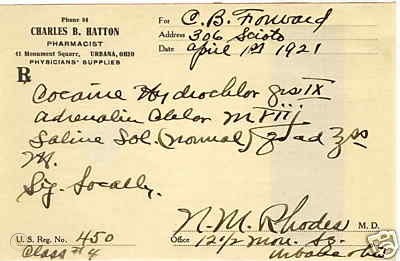 Phone 84
CHARLES B. HATTON
PHARMACIST
41 Monument Square, URBANA, OHIO
PHYSICIANS' SUPPLIES
For C. B. Forward
Address 306 Scioto
Date April 1st 1921
℞
Cocaine Hydrochlor grs IX
Adrenalin Chlor M VIIj
Saline Sol. (normal) qs ad ʒss
M.
Sig. Locally.
N. M. Rhodes M. D.
U. S. Reg. No. 450
Office 12 1/2 Mon. Sq.
Class #4
Urbana Ohio